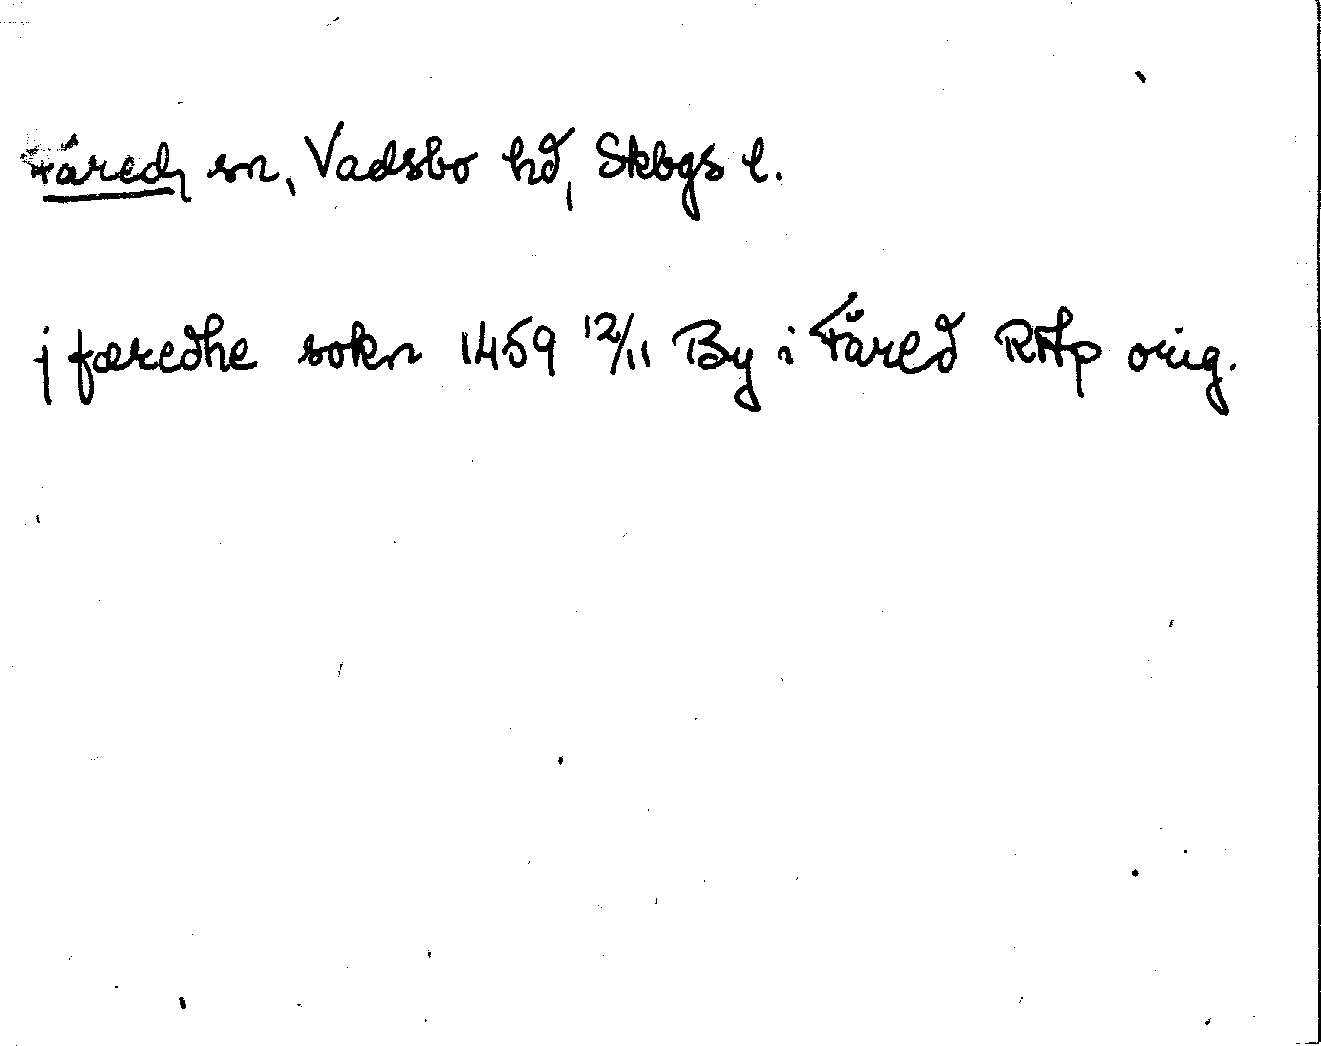 Färed, sn, Vadsbo hd, Skbgs l.
j færedhe sokn 1459 12/11 By i Färed RAp orig.